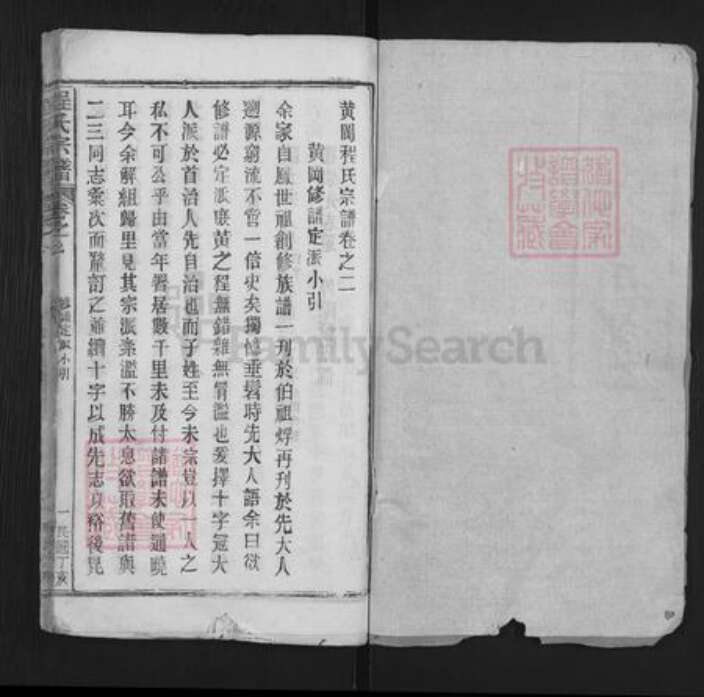 黃岡程氏宗譜卷之二
黃岡修譜定派小引
余家自鳳世祖創修族譜一刊於伯祖烰再刊於先大人
遡源窮流不啻一信史矣獨憶垂髫時先大人語余曰欲
修譜必定派庶黃之程無錯雜無冒濫也爰擇十字冠大
人派於首治人先自治也而子姓至今未宗豈以一人之
私不可公乎由當年署居數千里未及付諸譜未使通曉
耳今余解組歸里見其宗派紊濫不勝太息欲取舊譜與
二三同志彙次而釐訂之並續十字以成先志以裕後昆
程氏宗譜
卷之二
修譜定派小引
一
民國丁亥
FamilySearch